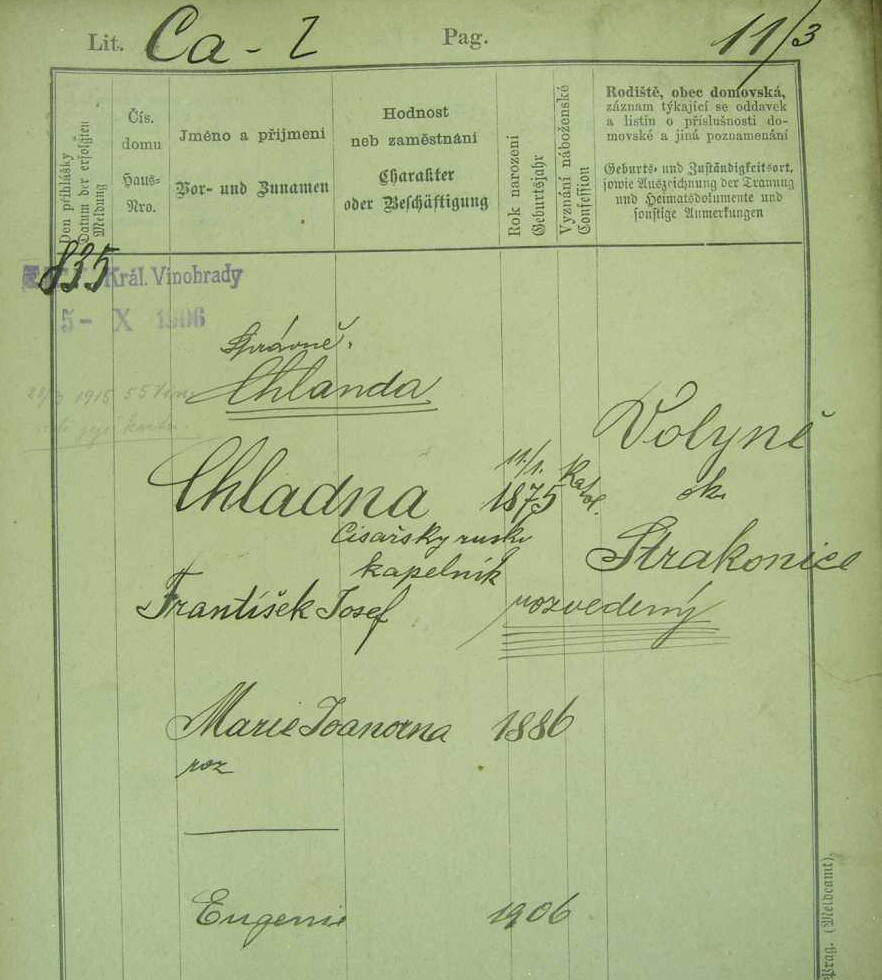 Lit. Ca - Z Pag. 11/3
Den přihlášky
Datum der erfolgten
Meldung
Čís.
domu
Haus-
Nro.
Jméno a příjmení
Vor- und Zunamen
Hodnost
neb zaměstnání
Charakter
oder Beschäftigung
Rok narození
Geburtsjahr
Vyznání náboženské
Confession
Rodiště, obec domovská,
záznam týkající se oddavek
a listin o příslušnosti do-
movské a jiná poznamenání
Geburts- und Zuständigkeitsort,
sowie Aufzeichnung der Trauung
und Heimatsdokumente und
sonstige Anmerkungen
835
Král. Vinohrady
5 - X 1906
Správně.
Chlanda
1915
Volyně
11/1. Katol.
Chladna 1875 ok.
Císařsky rusky
kapelník Strakonice
František Josef rozvedený
Marie 1886
roz
Eugenie 1906
Prag. (Meldeamt).